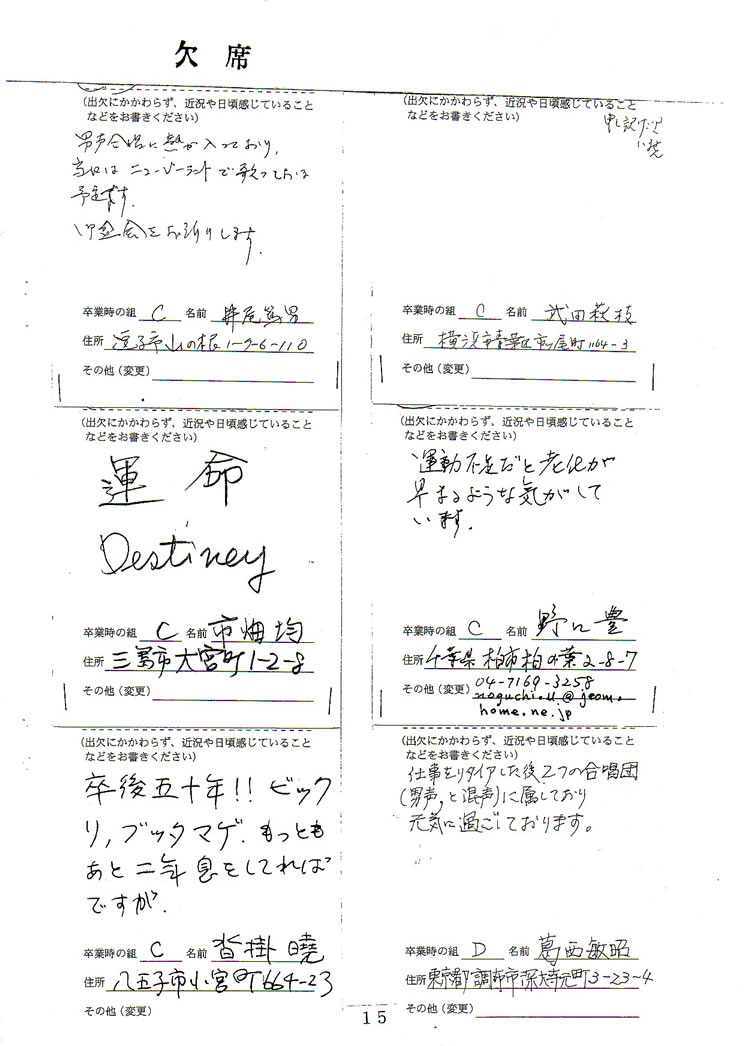 欠席
(出欠にかかわらず、近況や日頃感じていること
などをお書きください)
男声合唱に熱が入っており、
当日は ニュージーランド で歌っている
予定です。
盛会をお祈りします。
卒業時の組 C 名前 井尾
住所 逗子市山の根1-7-6-110
その他(変更)
(出欠にかかわらず、近況や日頃感じていること
などをお書きください)
卒業時の組 C 名前 武田萩枝
住所 横浜市青葉区市ヶ尾町1164-3
その他(変更)
(出欠にかかわらず、近況や日頃感じていること
などをお書きください)
運命
Destiney
卒業時の組 C 名前 市畑均
住所 市大宮町1-2-8
その他(変更)
(出欠にかかわらず、近況や日頃感じていること
などをお書きください)
運動不足だと老化が
早まるような気がして
います。
卒業時の組 C 名前 野口豊
住所 千葉県柏市柏の葉2-8-7
その他(変更) 04-7169-3258
noguchi.u@jcom.
home.ne.jp
(出欠にかかわらず、近況や日頃感じていること
などをお書きください)
卒後五十年!! ビック
リ,ブッタマゲ. もっとも
あと二年息をしてれば
ですが.
卒業時の組 C 名前 沓掛曉
住所 八王子市小宮町664-23
その他(変更)
(出欠にかかわらず、近況や日頃感じていること
などをお書きください)
仕事をリタイアした後2つの合唱団
(男声,と混声)に属しており
元気に過ごしております。
卒業時の組 D 名前 葛西敏昭
住所 東京都調布市深大寺元町3-23-4
その他(変更)
15